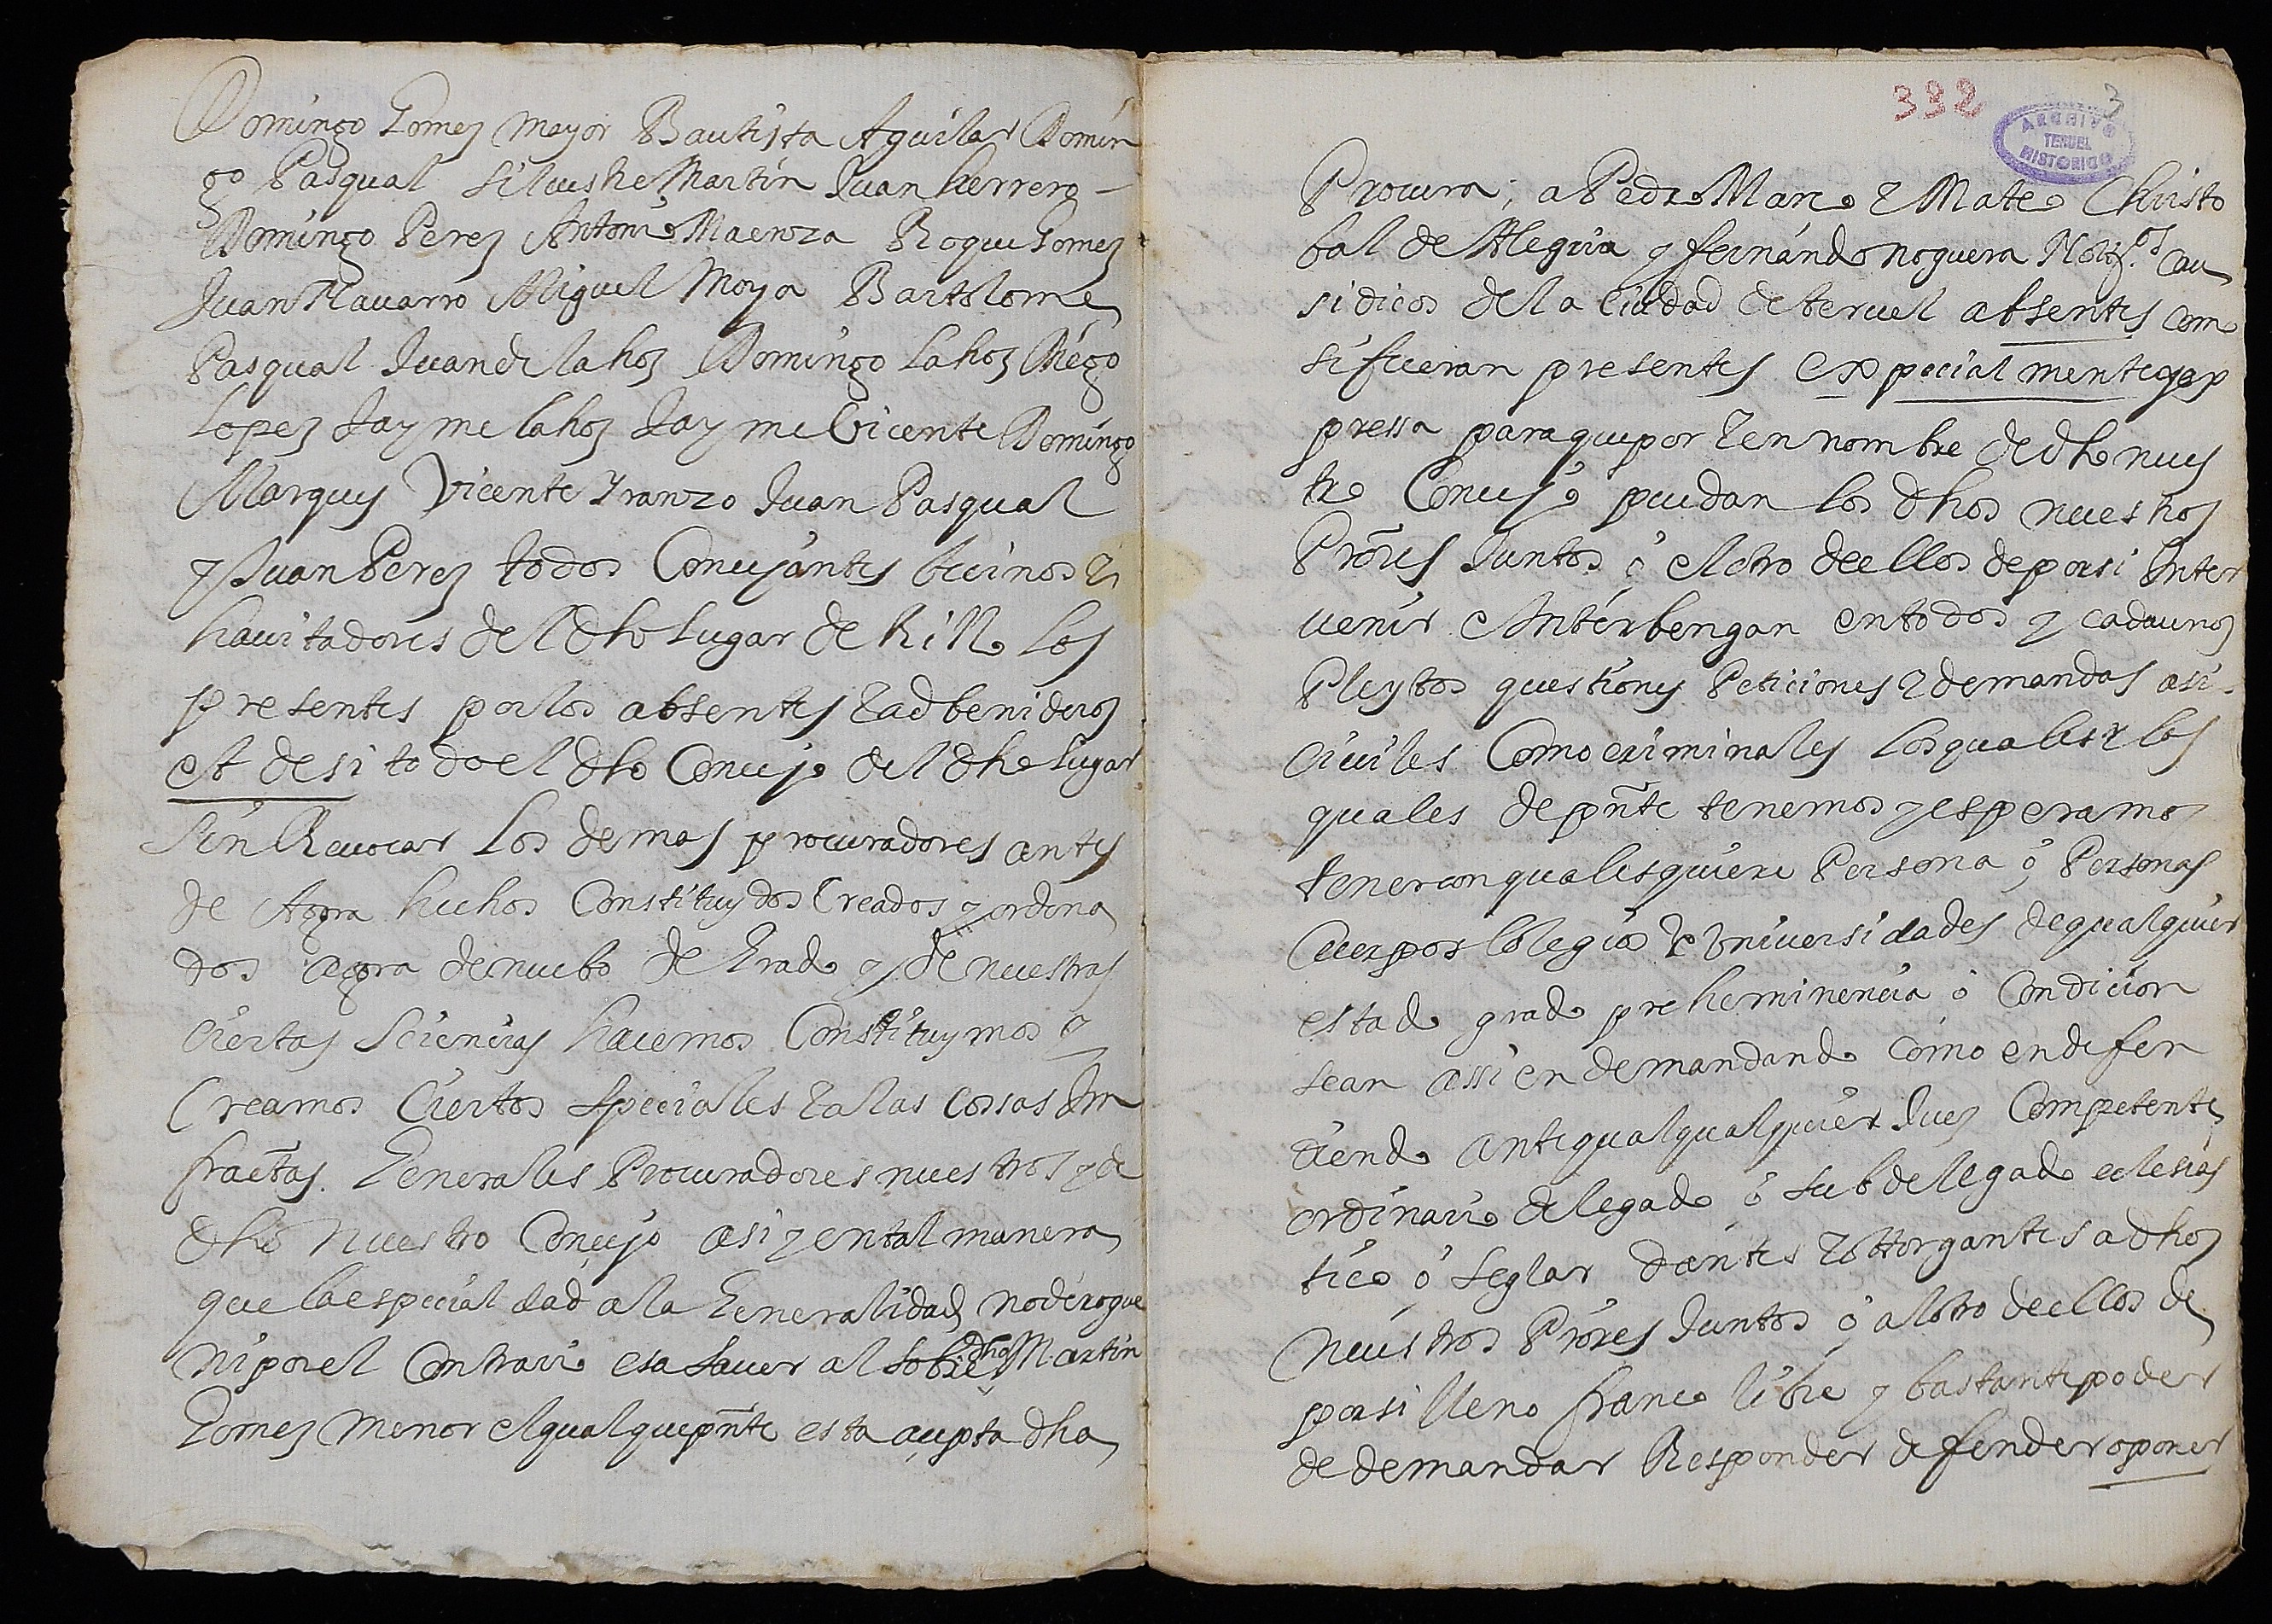 Domingo Gomez mayor Bautista Aguilar Domin
go Pasqual Siluestre Martin Juan herrero
Domingo Perez Antonio Maenza Roque Gomez
Juan Nauarro Miguel Moya Bartolome
Pasqual Juan de la hoz Domingo Lahoz Diego
Lopez Jayme lahoz Jayme Vicente Domingo
Marques Vicente Yranzo Juan Pasqual
y Juan Perez todos Concejantes becinos e
hauitadores del dho Lugar de Rillo los
presentes por los absentes e adbenideros
et de si todo el dho Concejo del dho Lugar
Sin Reuocar los demas procuradores antes
de Agora hechos Constituydos Creados y ordena
dos agora de nuebo de Grado y de nuestras
ciertas Sciencias hacemos Constituymos y
Creamos Ciertos Speciales e a las cossas Inf
fractas. Generales Procuradores nuestros y de
dho nuestro Concejo asi y en tal manera
que la especialidad a la Generalidad no derogue
ni por el Contrario es a sauer al sobredho Martin
Gomez menor el qual que pnte esta acepta dha
332
3
ARCHIVO
TERUEL
HISTORICO
Procura; a Pedro Marco e Mateo Christo
bal de Alegria y fernando noguera Notos. Cau
sidicos de la Ciudad de teruel absentes como
si fueran presentes expecialmente y exp
pressa para que por e en nombre de dho nues
tro Concejo puedan los dhos nuestros
Prores Juntos o el otro de ellos de por si Inter
uenir e Interbengan en todos y cada unos
Pleytos questiones Peticiones e demandas asi
ciuiles Como criminales los quales e las
quales de pnte tenemos y esperamos
tener con qualesquiere Persona o Personas
Cuerpos Colegios e Vniuersidades de qualquier
estado grado preheminencia o Condicion
sean assi en demandando como en defen
diendo ante qualqualquier Juez Competente
ordinario delegado o subdelegado eclesias
tico o seglar dantes e ottorgantes a dhos
nuestros Prores Juntos o al otro de ellos de
por si lleno franco libre y bastante poder
de demandar Responder defender oponer